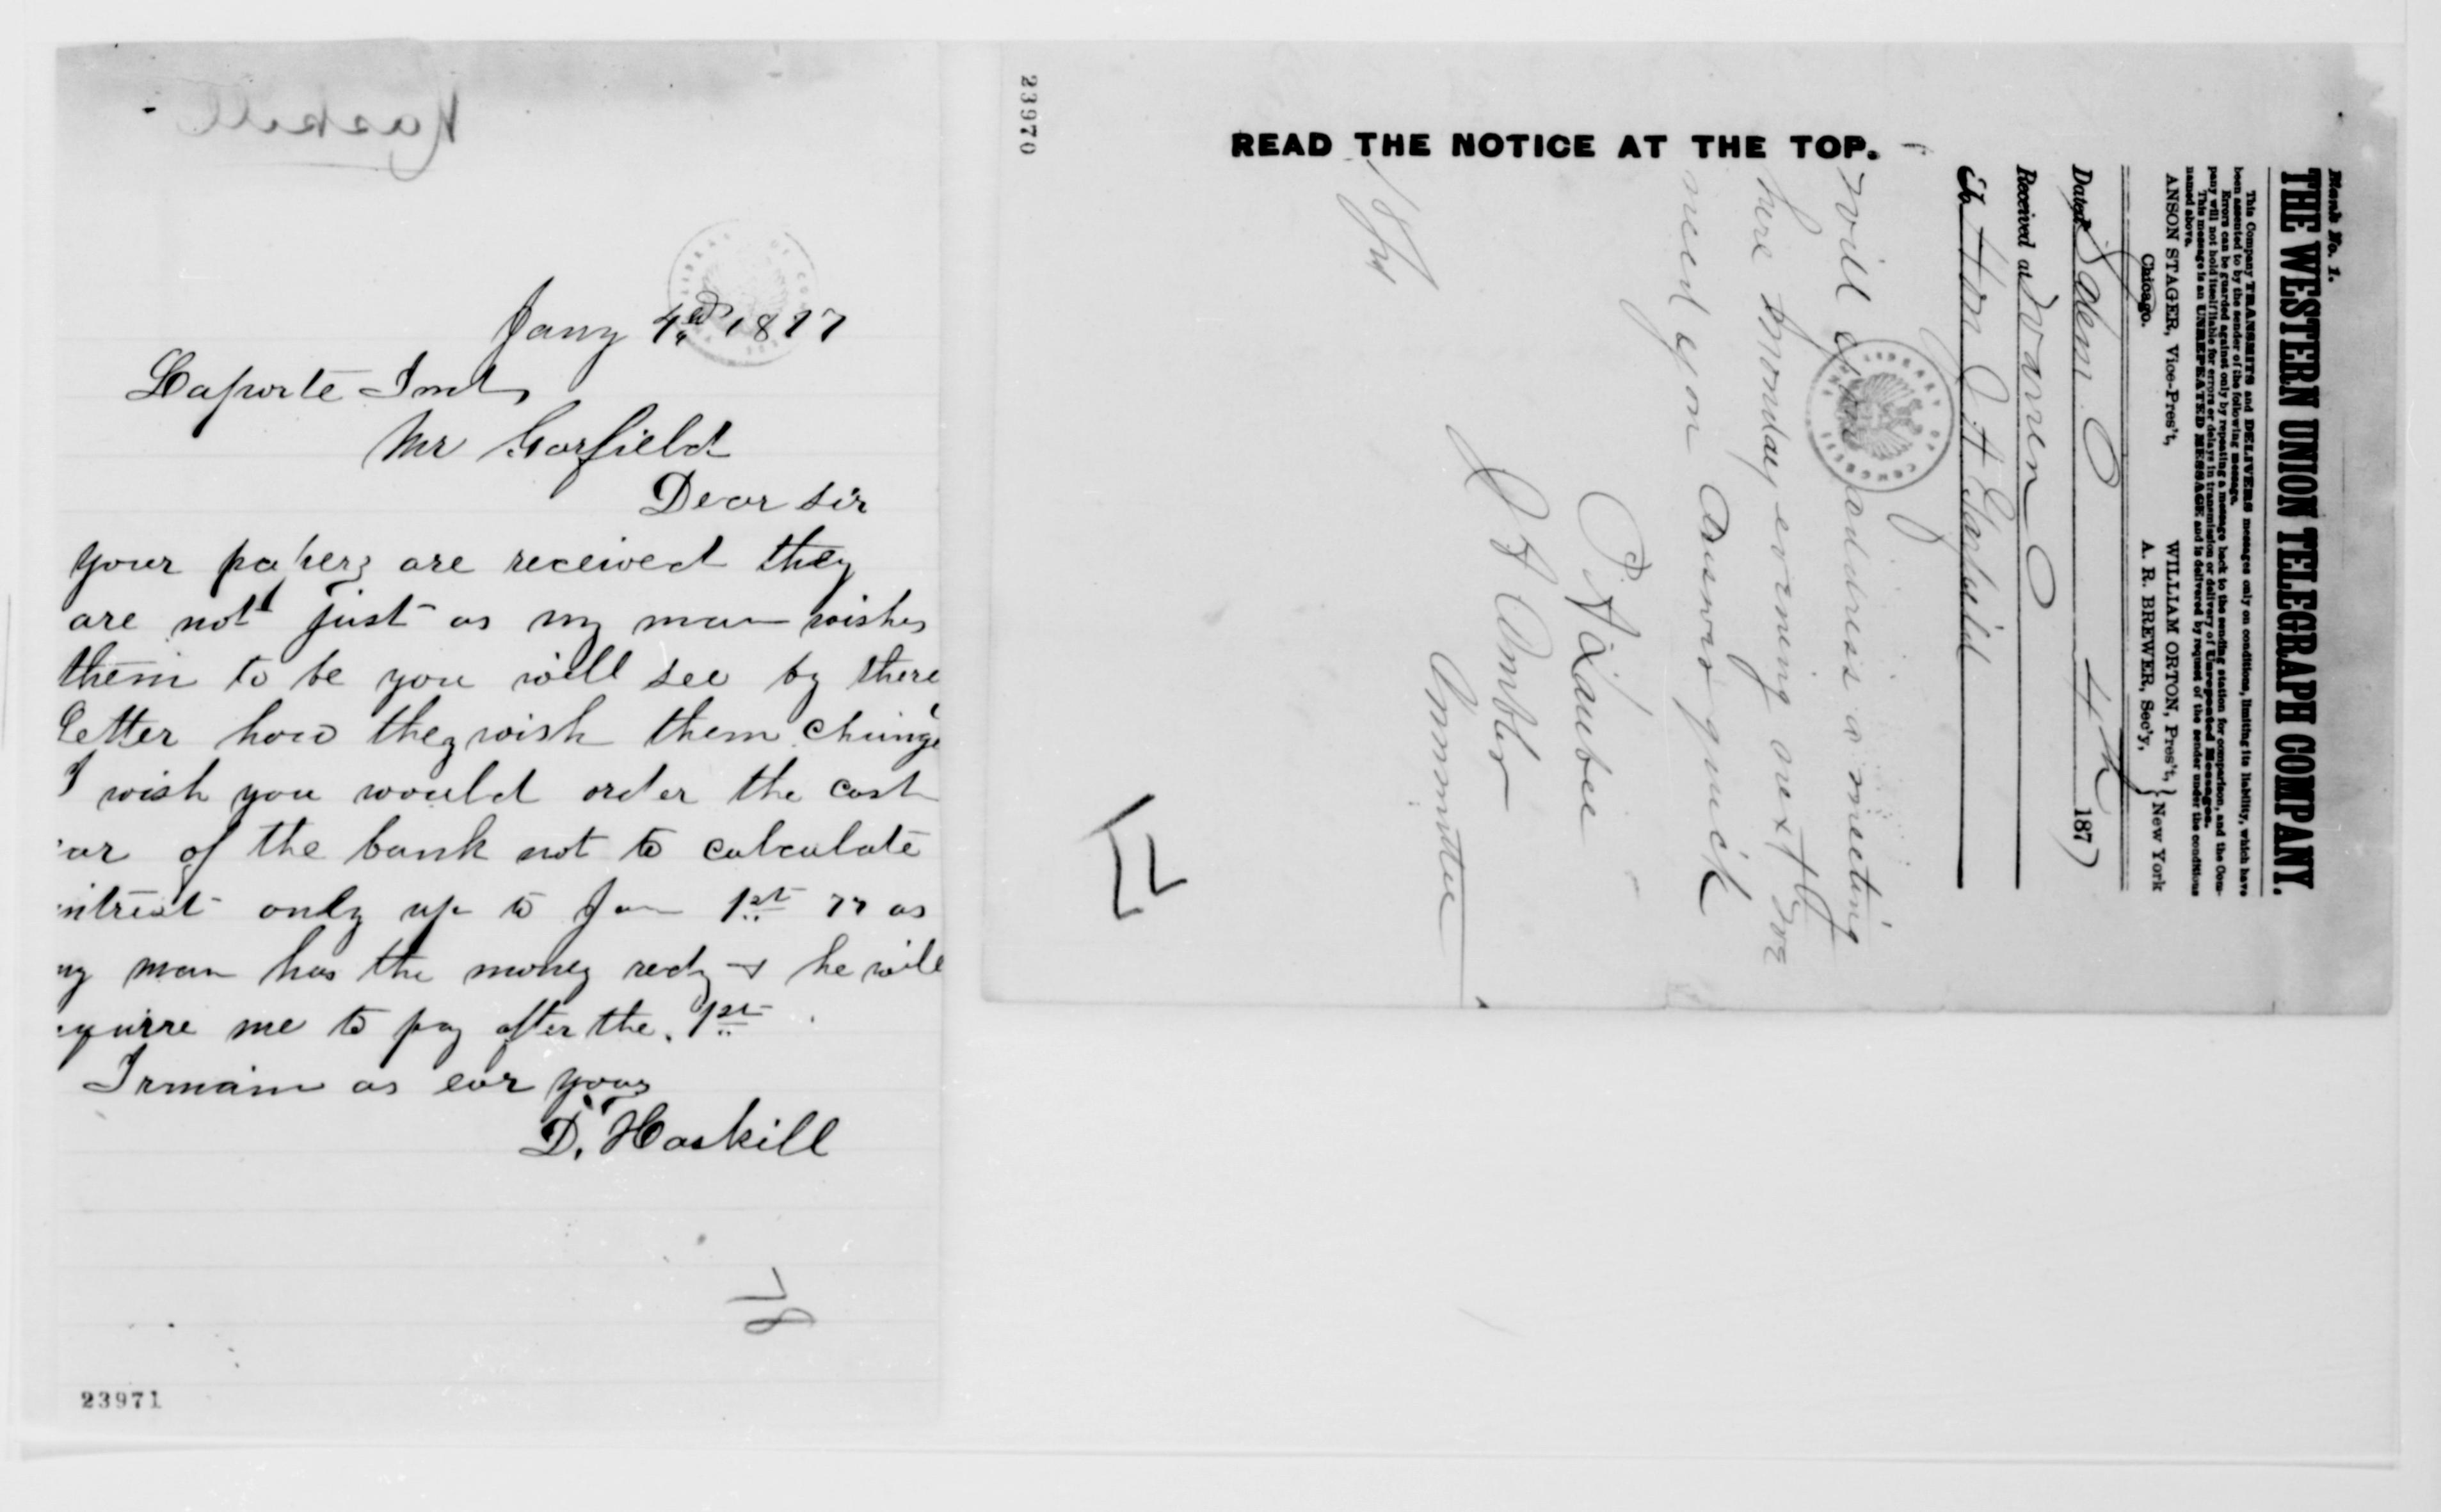 Haskill
Jany 4th 1877
Laporte Ind,
Mr Garfield
Dear sir
your papers are received they
are not just as my man wishes
them to be you will see by there
letter how they wish them change
I wish you would order the cash
ar of the bank not to calculate
intrest only up to Jan 1st 77 as
my man has the money redy & he will
equire me to pay after the 1st
I rmain as ever yours
D. Haskill
23971
23970
READ THE NOTICE AT THE TOP.
Blank No. 1.
THE WESTERN UNION TELEGRAPH COMPANY.
This Company TRANSMITS and DELIVERS messages only on conditions, limiting its liability, which have
been assented to by the sender of the following message.
Errors can be guarded against only by repeating a message back to the sending station for comparison, and the Com-
pany will not hold itself liable for errors or delays in transmission or delivery of Unrepeated Messages.
This message is an UNREPEATED MESSAGE and is delivered by request of the sender under the conditions
named above.
ANSON STAGER, Vice-Pres't, WILLIAM ORTON, Pres't, } New York
Chicago. A. R. BREWER, Sec'y,
Dated Salem O 4th 1877
Received at Warren O
To Hon J A Garfield
Will you address a meeting
here Monday evening next We
need you Answer quick
J A Ambler
Committee